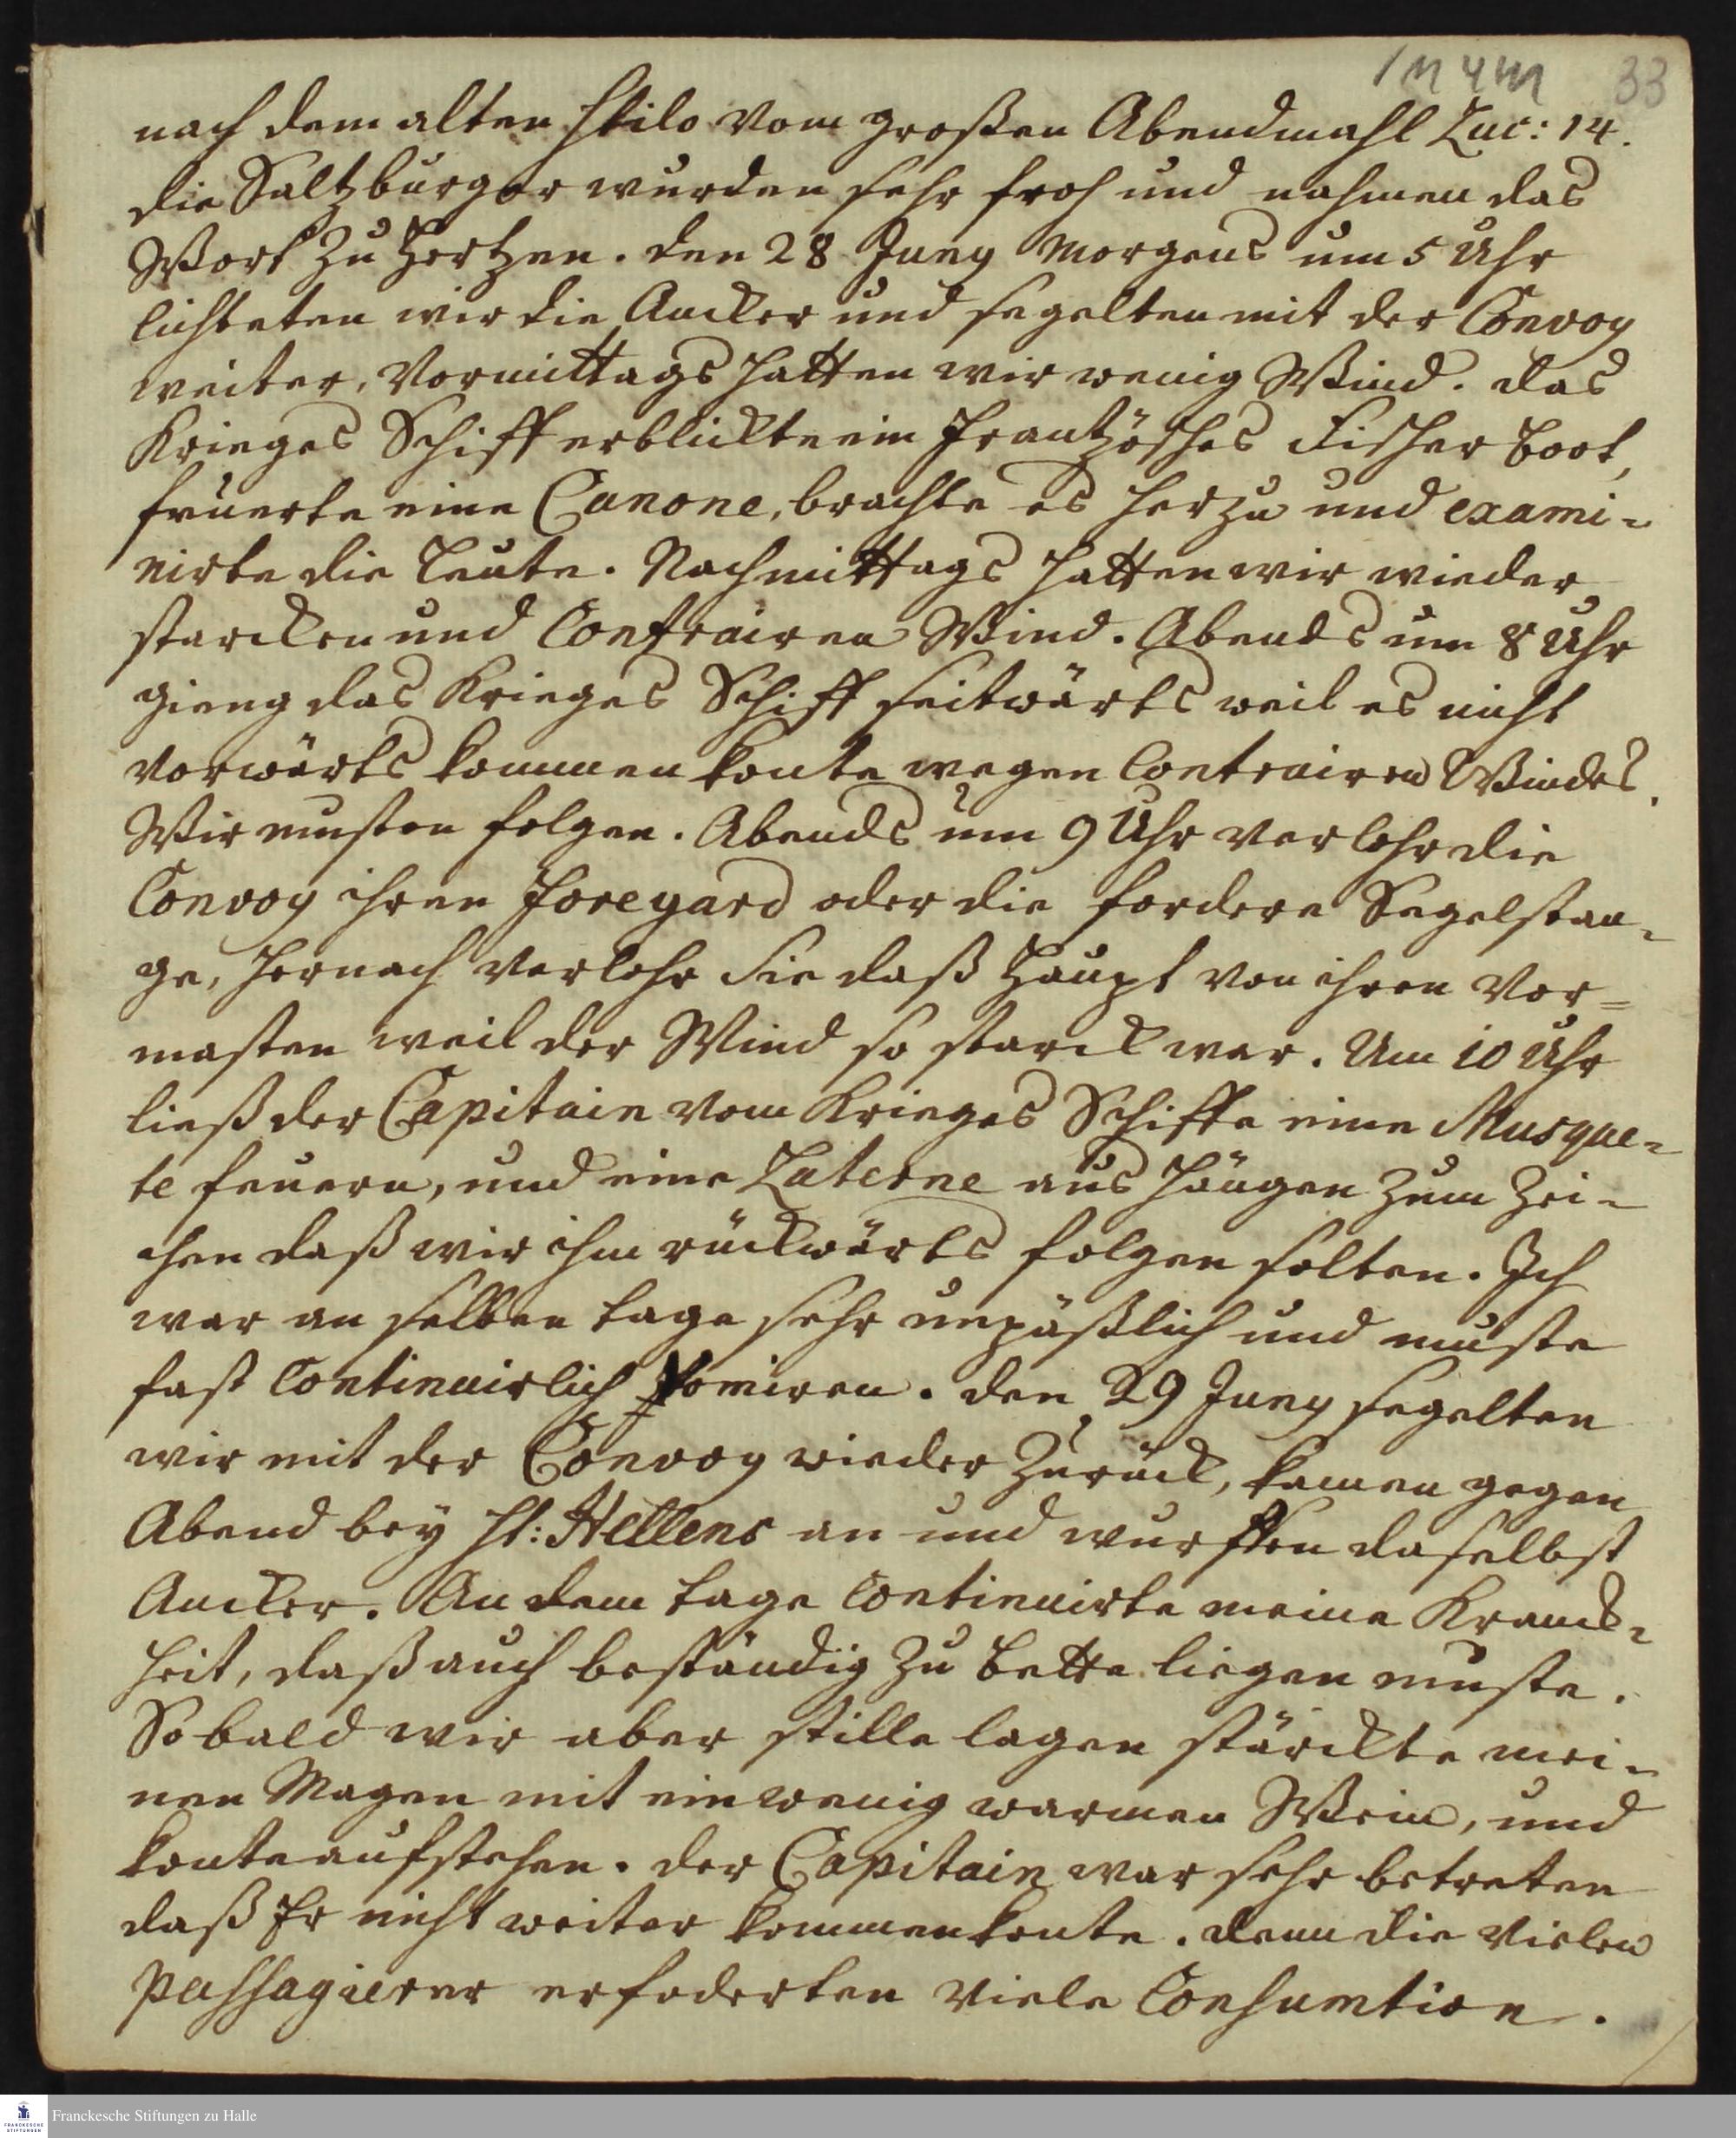 33
nach dem alten Stilo vom großen Abendmahl Luc: 14.
die Saltzburger wurden sehr froh und nahmen das
Wort zu Hertzen. den 28 Juny Morgens um 5 Uhr
lichteten wir die Ancker und segelten mit der Convoy
weiter, Vormittags hatten wir wenig Wind. das
Krieges Schiff erblickte ein Frantzösches Fischer Boot,
feuerte eine Canone, brachte es herzu und exami-
nirte die Leute. Nachmittags hatten wir wieder
starcken und Contrairen Wind. Abends um 8 Uhr
gieng das Krieges Schiff seitwärts weil es nicht
vorwärts kommen konte wegen Contrairen Windes.
Wir musten folgen. Abends um 9 Uhr verlohr die
Convoy ihren Foreyard oder die fordere Segelstan-
ge, hernach verlohr sie daß Haupt von ihren Vor=
masten weil der Wind so starck war. Um 10 Uhr
ließ der Capitain vom Krieges Schiffe eine Musque-
te feuern, und eine Laterne aus hängen zum Zei-
chen daß wir ihm rückwärts folgen solten. Ich
war an selben tage sehr unpäßlich und muste
fast Continuirlich Vomiren. den 29 Juny segelten
wir mit der Convoy wieder zurück, kamen gegen
Abend bey St: Hellens an und wurffen daselbst
Ancker. An dem tage Continuirte meine Kranck-
heit, daß auch beständig zu Bette liegen muste.
So bald wir aber stille lagen stärckte mei-
nen Magen mit ein wenig warmen Wein, und
konte aufstehen. der Capitain war sehr betreten
daß Er nicht weiter kommen konte. denn die Vielen
Passagierer erfoderten Viele Consumtion.
Franckesche Stiftungen zu Halle
FRANCKESCHE
STIFTUNGEN